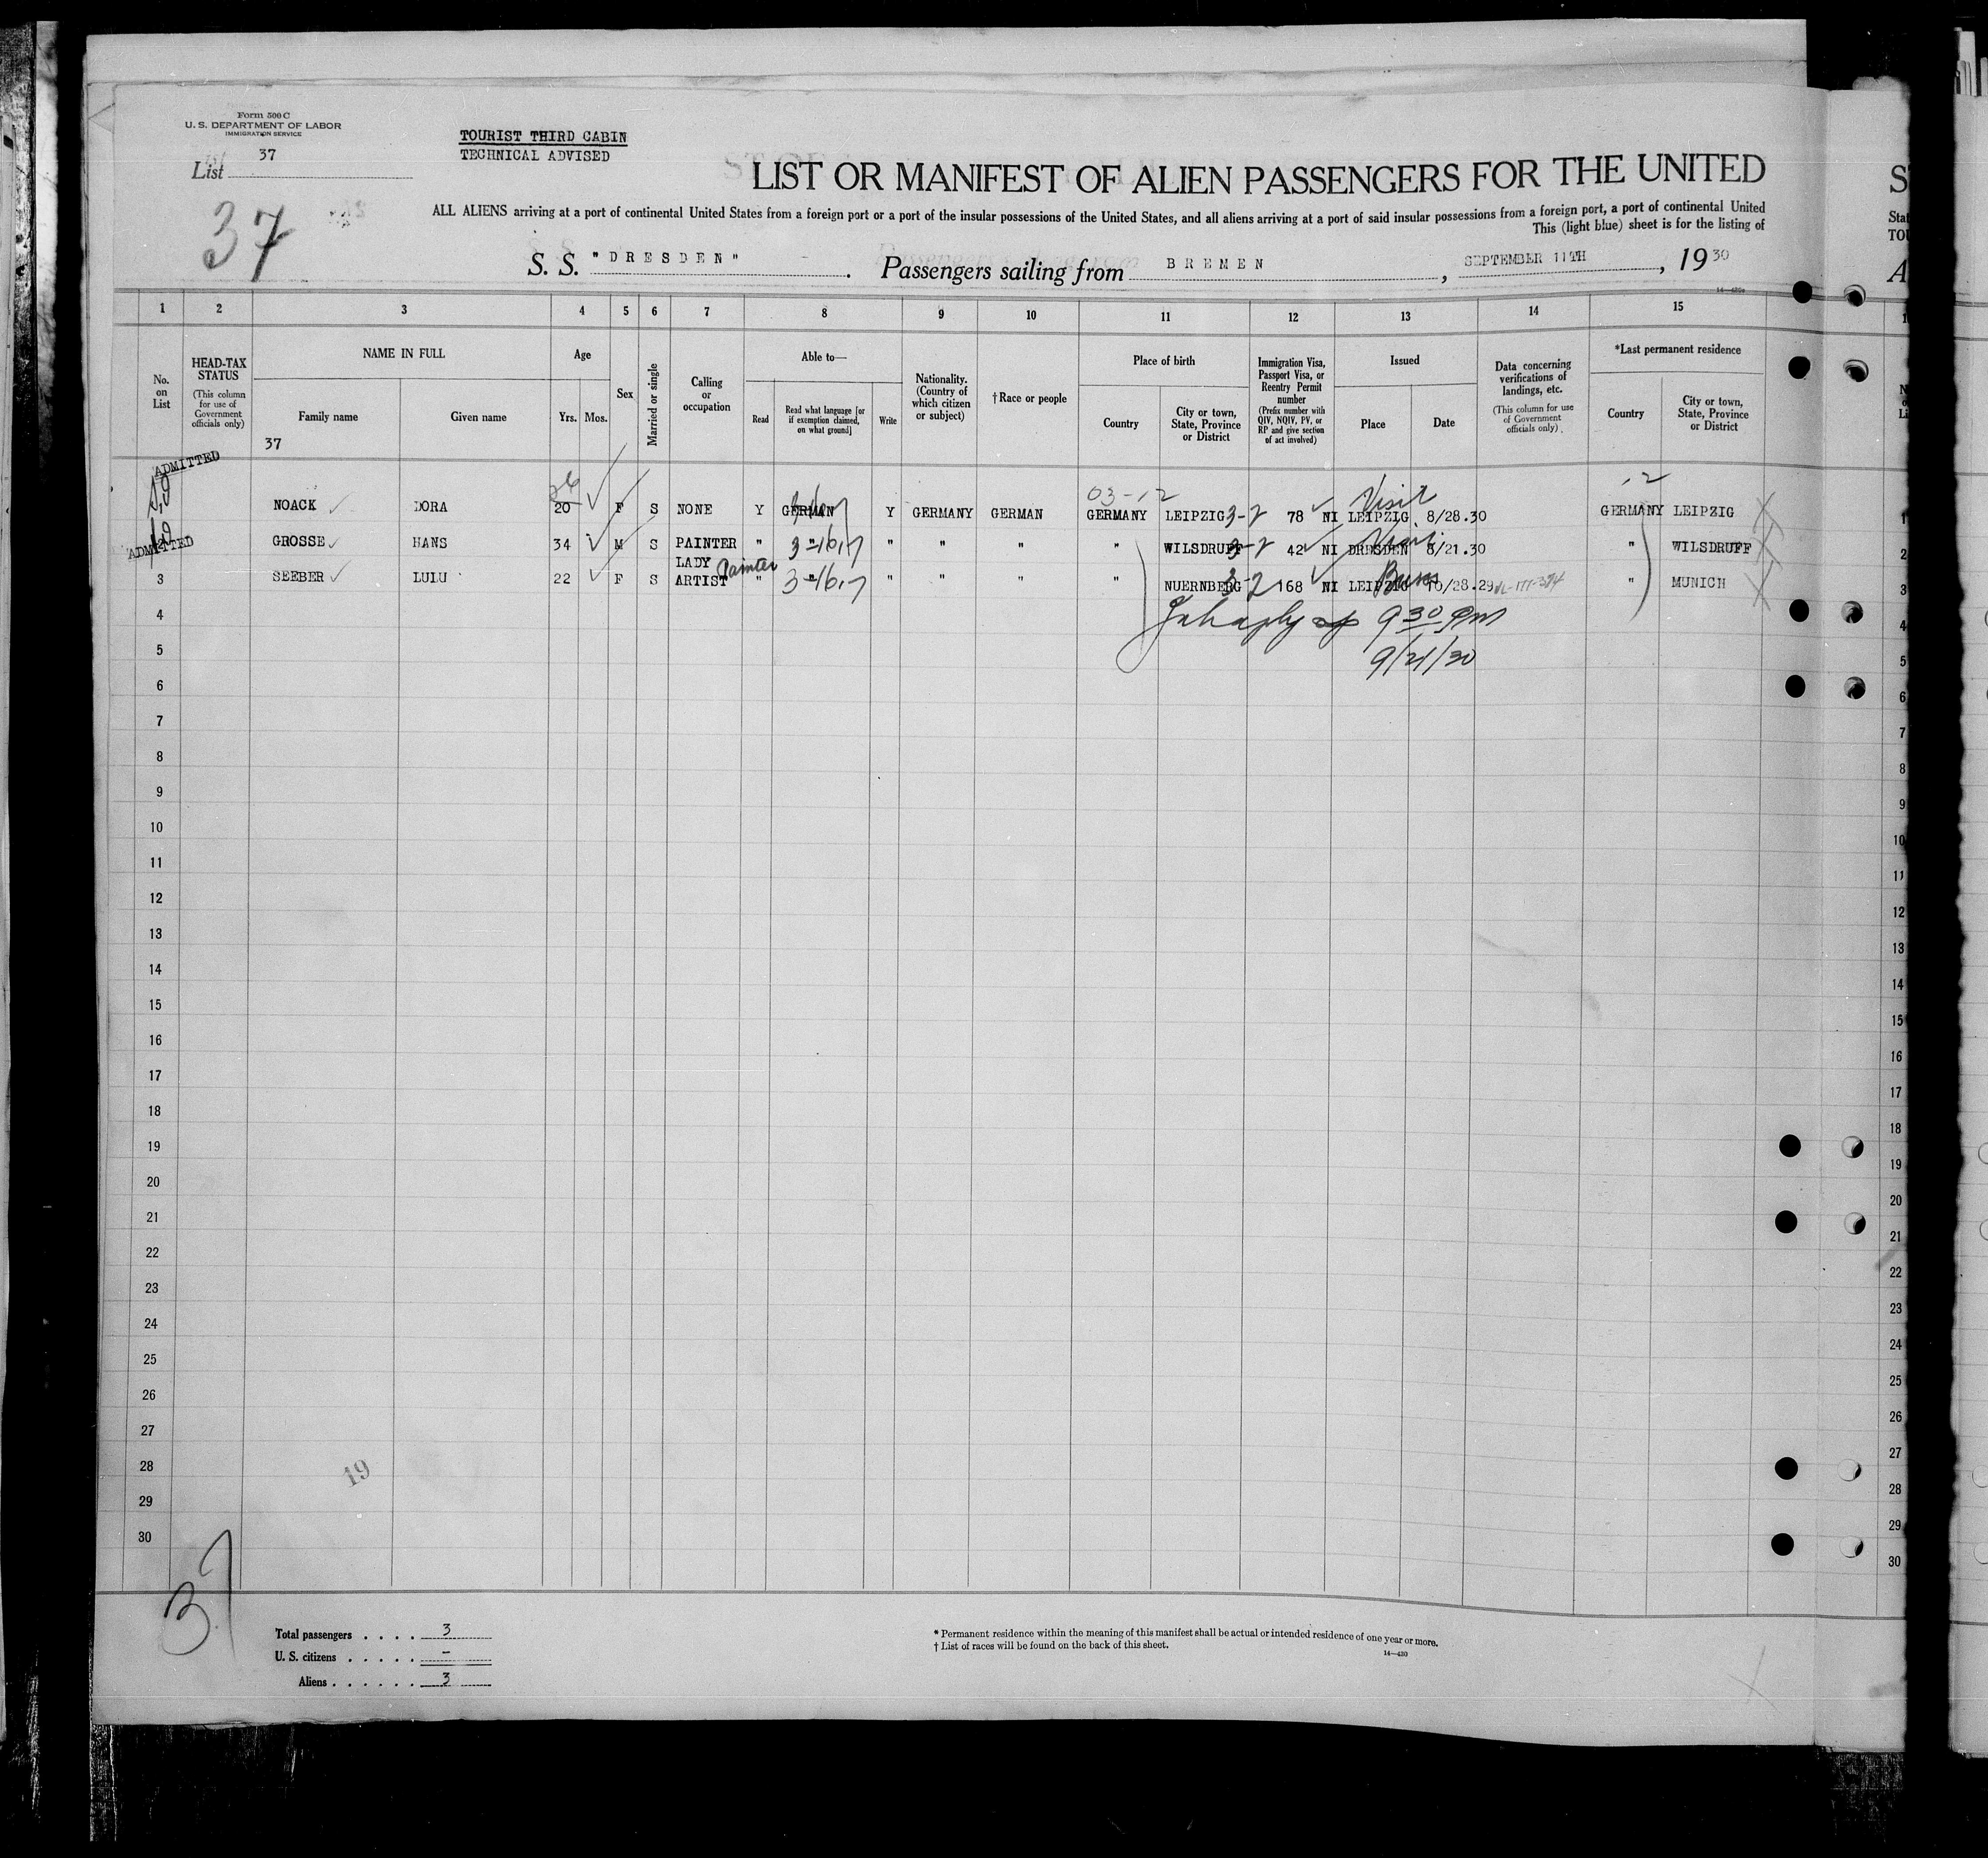 Form 500 C
U. S. DEPARTMENT OF LABOR
IMMIGRATION SERVICE
List 37
37
TOURIST THIRD CABIN
TECHNICAL ADVISED
LIST OR MANIFEST OF ALIEN PASSENGERS FOR THE UNITED
ALL ALIENS arriving at a port of continental United States from a foreign port or a port of the insular possessions of the United States, and all aliens arriving at a port of said insular possessions from a foreign port, a port of continental United
This (light blue) sheet is for the listing of
S. S. "DRESDEN". Passengers sailing from BREMEN, SEPTEMBER 11TH, 1930
14—430
1 2 3 4 5 6 7 8 9 10 11 12 13 14 15
No. on List
HEAD-TAX STATUS (This column for use of Government officials only)
NAME IN FULL
Family name
Given name
37
Age
Yrs. Mos.
Sex
Married or single
Calling or occupation
Able to—
Read
Read what language [or if exemption claimed, on what ground]
Write
Nationality. (Country of which citizen or subject)
†Race or people
Place of birth
Country
City or town, State, Province or District
Immigration Visa, Passport Visa, or Reentry Permit number (Prefix number with QIV, NQIV, PV, or RP and give section of act involved)
Issued
Place
Date
Data concerning verifications of landings, etc. (This column for use of Government officials only)
*Last permanent residence
Country
City or town, State, Province or District
ADMITTED
26 03-12 Visit
NOACK DORA 20 F S NONE Y GERMAN Y GERMANY GERMAN GERMANY LEIPZIG 3-2 78 NI LEIPZIG 8/28.30 GERMANY LEIPZIG 1
ADMITTED
GROSSE HANS 34 M S PAINTER " 3-16,7 " " " " WILSDRUFF 3-2 42 NI DRESDEN 8/21.30 " WILSDRUFF 2
3 SEEBER LULU 22 F S LADY ARTIST Painter " 3-16,7 " " " " NUERNBERG 3-2 168 NI LEIPZIG Buss 10/28.29 " MUNICH 3
4 9 30 pm 4
5 9/21/30 5
6 6
7 7
8 8
9 9
10 10
11 11
12 12
13 13
14 14
15 15
16 16
17 17
18 18
19 19
20 20
21 21
22 22
23 23
24 24
25 25
26 26
27 27
28 19 28
29 29
30 30
37
Total passengers . . . . 3
U. S. citizens . . . . . –
Aliens . . . . . . 3
* Permanent residence within the meaning of this manifest shall be actual or intended residence of one year or more.
† List of races will be found on the back of this sheet.
14—430